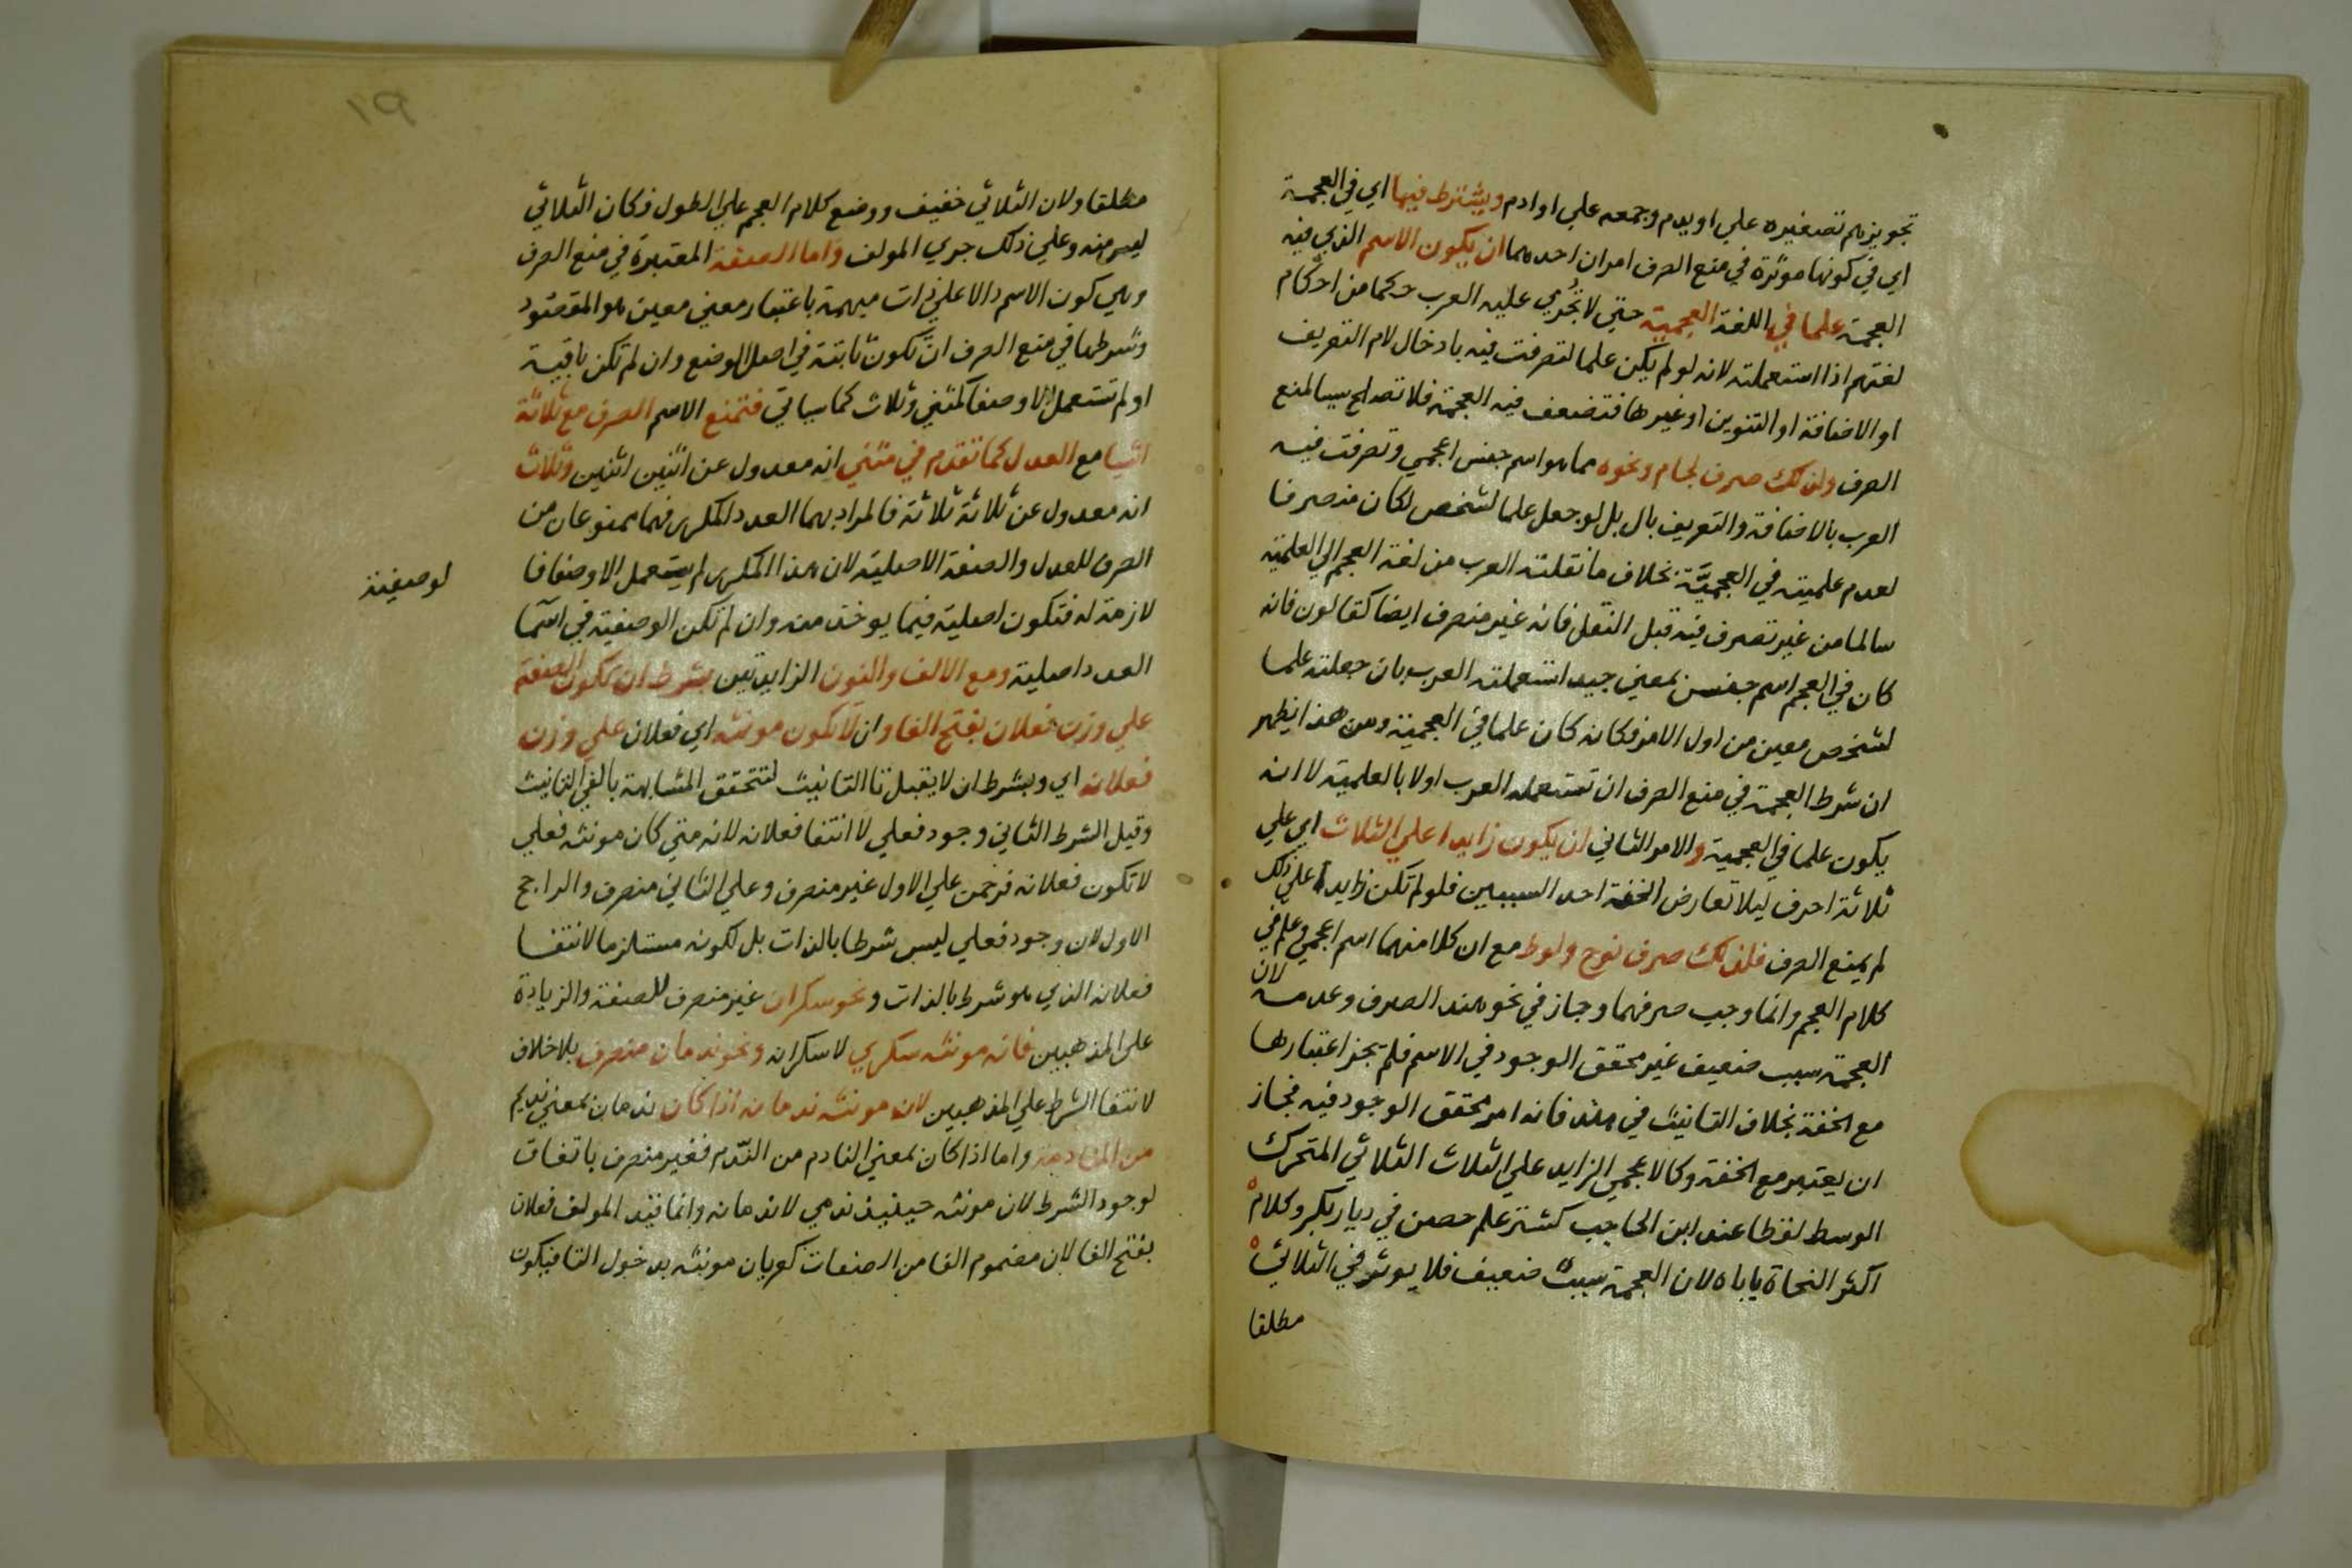 تجويزهم تصغيره علي اويدم وجمعه علي اوادم ويشترط فيها اي في العجمة
اي في كونها موثرة في منع الصرف امران احدهما ان يكون الاسم الذي فيه
العجمة علما في اللغة العجمية حتي لا تجري عليه العرب حكما من احكام
لغتهم اذا استعملته لانه لو لم يكن علما لتصرفت فيه بادخال لام التعريف
او الاضافة او التنوين او غيرها فتضعف فيه العجمة فلا تصلح سببا لمنع
الصرف ولذلك صرف لجام ونحوه مما هو اسم جنس اعجمي وتصرفت فيه
العرب بالاضافة والتعريف بال بل لو جعل علما لشخص لكان منصرفا
لعدم علميته في العجميّة بخلاف ما نقلته العرب من لغة العجم الي العلمية
سالما من غير تصرف فيه قبل النقل فانه غير منصرف ايضا كقالون فانه
كان في العجم اسم جنس بمعني جيد استعملته العرب بان جعلته علما
لشخص معين من اول الامر فكانه كان علما في العجمية ومن هذا يظهر
ان شرط العجمة في منع الصرف ان تستعمله العرب اولا بالعلمية لا انه
يكون علما في العجمية والامر الثاني ان يكون زايدا علي الثلاث اي علي
ثلاثة احرف ليلا تعارض الخفة احد السببين فلو لم تكن زايدا علي ذلك
لم يمنع الصرف فلذلك صرف نوح ولوط مع ان كلا منهما اسم اعجمي وعلم في
كلام العجم وانما وجب صرفهما وجاز في نحو هند الصرف وعدمه لان
العجمة سبب ضعيف غير محقق الوجود في الاسم فلم يجز اعتبارها
مع الخفة بخلاف التانيث في هند فانه امر محقق الوجود فيه فجاز
ان يعتبر مع الخفة وكالاعجمي الزايد علي الثلاث الثلاثي المتحرك
الوسط لفظا عند ابن الحاجب كشتر علم حصن في ديار بكر وكلام
اكثر النحاة ياباه لان العجمة سبب ضعيف فلا يوثر في الثلاثي
مطلقا
١٩
مطلقا ولان الثلاثي خفيف ووضع كلام العجم علي الطول فكان الثلاثي
ليس منه وعلي ذلك جري المولف واما الصفة المعتبرة في منع الصرف
وهي كون الاسم دالا علي ذات مبهمة باعتبار معني معين هو المقصود
وشرطها في منع الصرف ان تكون ثابتة في اصل الوضع وان لم تكن باقية
او لم تستعمل الا وصفا كمثني وثلاث كما سياتي فتمنع الاسم الصرف مع ثلاثة
اشيا مع العدل كما تقدم في مثني انه معدول عن اثنين اثنين وثلاث
انه معدول عن ثلاثة ثلاثة فالمراد بهما العدد المكرر فهما ممنوعان من
الصرف للعدل والصفة الاصلية لان هذا المكرر لم يستعمل الا وصفا فا
لوصفية
لازمة له فتكون اصلية فيما يوخذ منه وان لم تكن الوصفية في اسما
العدد اصلية ومع الالف والنون الزايدتين بشرط ان تكون الصفة
علي وزن فعلان بفتح الفا وان لا تكون مونثه اي فعلان علي وزن
فعلانه اي وبشرط ان لا يقبل تا التانيث لتتحقق المشابهة بالفي التانيث
وقيل الشرط الثاني وجود فعلي لا انتفا فعلانه لانه متي كان مونثه فعلي
لا تكون فعلانه فرحمن علي الاول غير منصرف وعلي الثاني منصرف والراجح
الاول لان وجود فعلي ليس شرطا بالذات بل لكونه مستلزما لانتفا
فعلانه الذي هو شرط بالذات ونحو سكران غير منصرف للصفة والزيادة
علي المذهبين فانه مونثه سكري لا سكرانه ونحو ندمان منصرف بلا خلاف
لانتفا الشرط علي المذهبين لان مونثه ندمانه اذا كان ندمان بمعني نديم
من المنادمة واما اذا كان بمعني النادم من النّدم فغير منصرف باتفاق
لوجود الشرط لان مونثه حينيذ ندمي لا ندمانه وانما قيد المولف فعلان
بفتح الفا لان مضموم الفا من الصفات كعريان مونثه بدخول التا فيكون